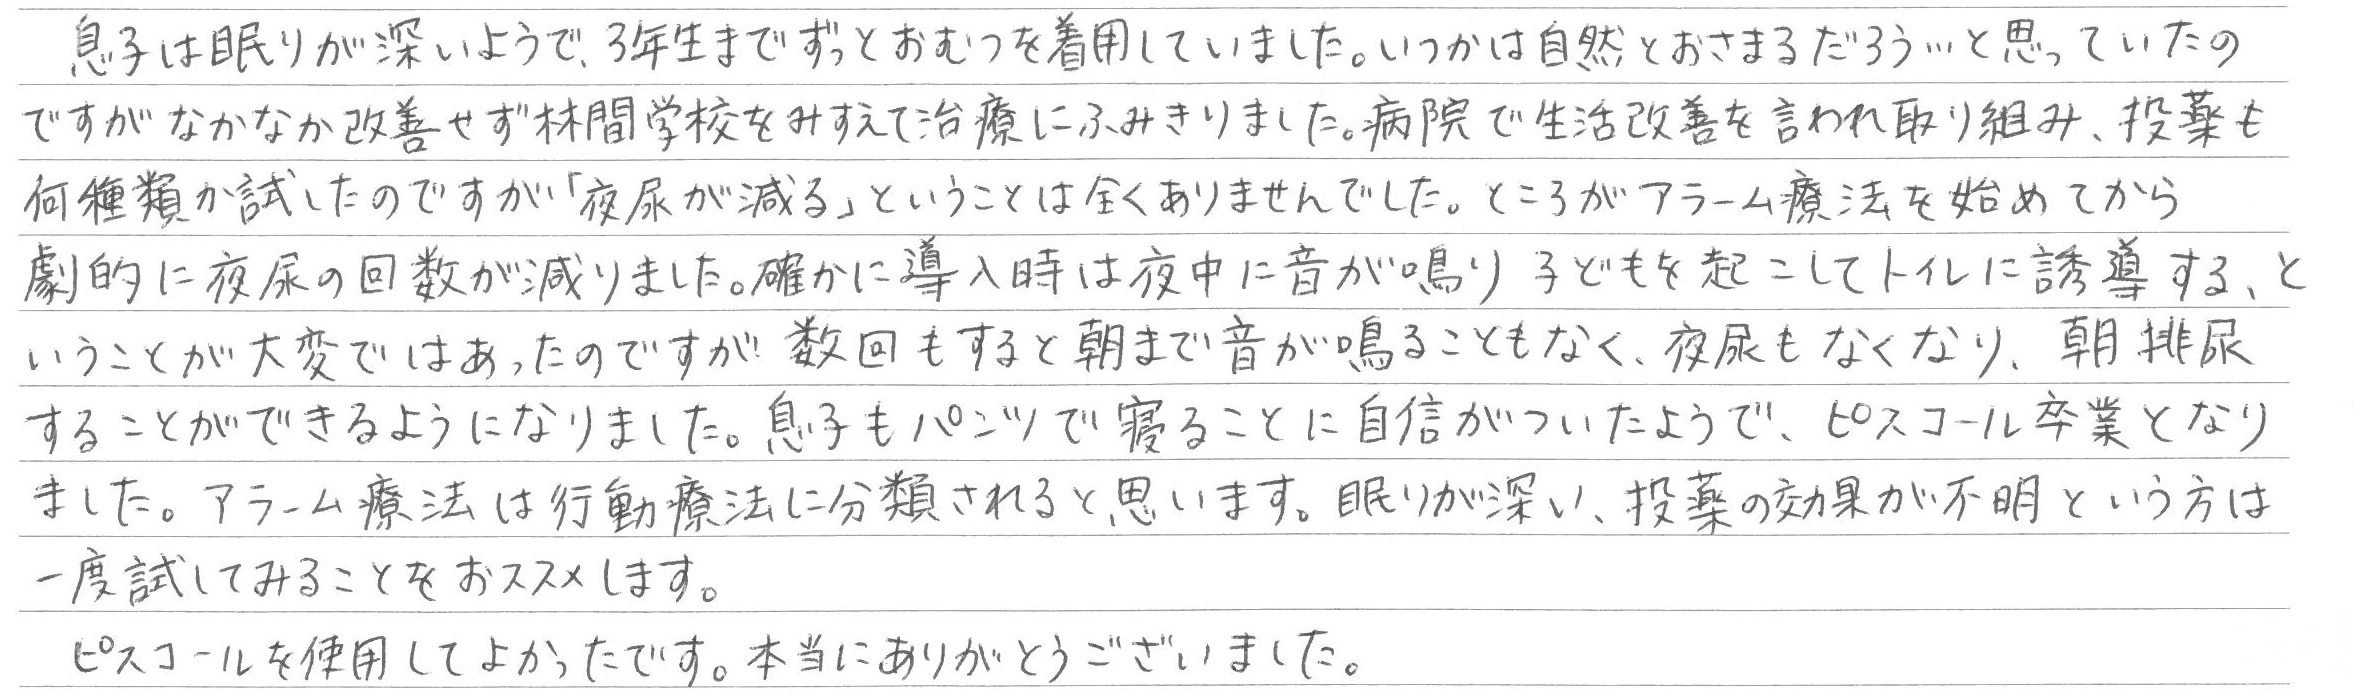 息子は眠りが深いようで、3年生までずっとおむつを着用していました。いつかは自然とおさまるだろう…と思っていたの
ですがなかなか改善せず林間学校をみすえて治療にふみきりました。病院で生活改善を言われ取り組み、投薬も
何種類か試したのですが「夜尿が減る」ということは全くありませんでした。ところがアラーム療法を始めてから
劇的に夜尿の回数が減りました。確かに導入時は夜中に音が鳴り子どもを起こしてトイレに誘導する、と
いうことが大変ではあったのですが数回もすると朝まで音が鳴ることもなく、夜尿もなくなり、朝排尿
することができるようになりました。息子もパンツで寝ることに自信がついたようで、ピスコール卒業となり
ました。アラーム療法は行動療法に分類されると思います。眠りが深い、投薬の効果が不明という方は
一度試してみることをおススメします。
ピスコールを使用してよかったです。本当にありがとうございました。